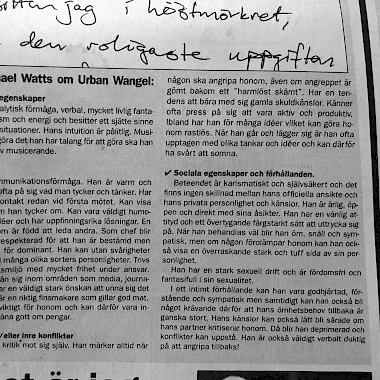 jag i höstmörkret,
den roligaste uppgiften
ael Watts om Urban Wangel:
egenskaper
alytisk förmåga, verbal, mycket livlig fanta-
ism och energi och besitter ett sjätte sinne
situationer. Hans intuition är pålitlig. Musi-
göra det han har talang för att göra ska han
v musicerande.
mmunikationsförmåga. Han är varm och
ofta på sig vad man tycker och tänker. Har
ontakt redan vid första mötet. Kan visa
om han tycker om. Kan vara väldigt humo-
déer och har uppfinningsrika lösningar. En
om är född att leda andra. Som chef blir
respekterad för att han är bestämd men
för dominant. Han kan utan svårigheter
i många olika sorters personligheter. Trivs
tsmiljö med mycket frihet under ansvar.
ån sig inom områden som media, journa-
ar en väldigt stark önskan att unna sig det
är en riktig finsmakare som gillar god mat.
viktigt för honom och kan därför vara in-
äna gott om pengar.
/eller inre konflikter
kritik mot sig själv. Han märker alltid när
någon ska angripa honom, även om angreppet är
gömt bakom ett "harmlöst skämt". Har en ten-
dens att bära med sig gamla skuldkänslor. Känner
ofta press på sig att vara aktiv och produktiv.
Ibland har han för många idéer vilket kan göra ho-
nom rastlös. När han går och lägger sig är han ofta
upptagen med olika tankar och idéer och kan därför
ha svårt att somna.
✔ Sociala egenskaper och förhållanden.
Beteendet är karismatiskt och självsäkert och det
finns ingen skillnad mellan hans officiella ansikte och
hans privata personlighet och känslor. Han är ärlig, öp-
pen och direkt med sina åsikter. Han har en vänlig att-
ityd och ett övertygande färgstarkt sätt att uttrycka sig
på. När han behandlas väl blir han öm, snäll och sym-
patisk, men om någon förolämpar honom kan han ock-
så visa en överraskande stark och tuff sida av sin per-
sonlighet.
Han har en stark sexuell drift och är fördomsfri och
fantasifull i sin sexualitet.
I ett intimt förhållande kan han vara godhjärtad, för-
stående och sympatisk men samtidigt kan han också bli
något krävande därför att hans ömhetsbehov tillbaka är
ganska stort. Hans känslor kan också lätt bli sårade om
hans partner kritiserar honom. Då blir han deprimerad och
konflikter kan uppstå. Han är också väldigt verbalt duktig
på att angripa tillbaks!